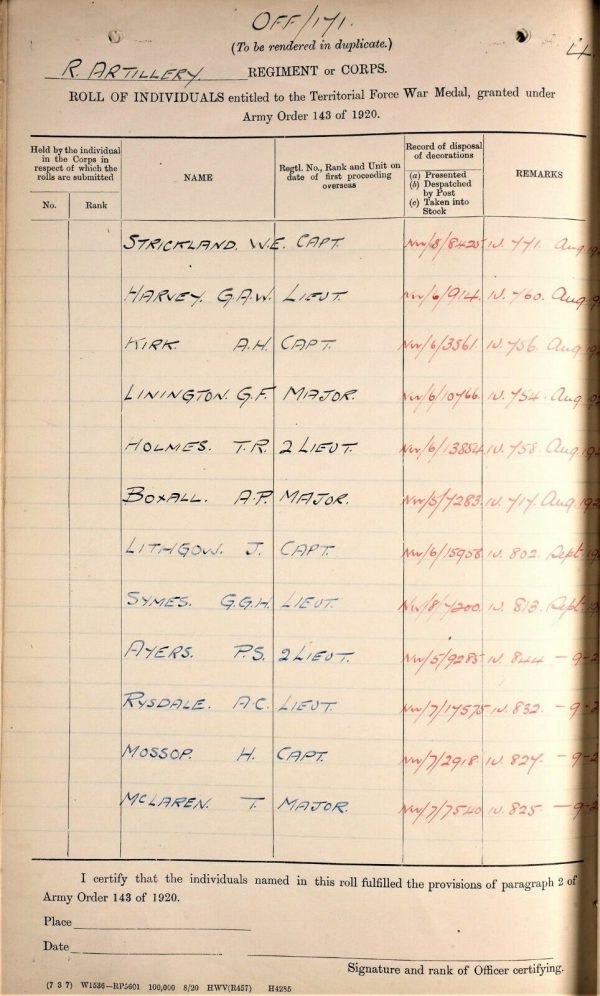 OFF/171.
(To be rendered in duplicate.)
R. ARTILLERY. REGIMENT OR CORPS.
ROLL OF INDIVIDUALS entitled to the Territorial Force War Medal, granted under
Army Order 143 of 1920.
Held by the individual in the Corps in respect of which the rolls are submitted
No. Rank
NAME
Regtl. No., Rank and Unit on date of first proceeding overseas
Record of disposal of decorations
(a) Presented
(b) Despatched by Post
(c) Taken into Stock
REMARKS
STRICKLAND. W.E. CAPT. NW/8/8425 IV. 771. Aug
HARVEY. G.A.W. LIEUT. NW/6/914. IV. 760. Aug
KIRK. A.H. CAPT. NW/6/3561. IV. 756. Aug
LININGTON. G.F. MAJOR. NW/6/10766. IV. 754. Aug
HOLMES. T.R. 2 LIEUT. NW/6/13854 IV. 758. Aug
BOXALL. A.P. MAJOR. NW/5/7283. IV. 717. Aug
LITHGOW. J. CAPT. NW/6/15958 IV. 802. Sept
SYMES. G.G.H. LIEUT. NW/8/7200. IV. 813. Sept
AYERS. P.S. 2 LIEUT. NW/5/9285 IV. 844 - 9-2
RYSDALE. A.C. LIEUT. NW/7/17575 IV. 832. - 9-2
MOSSOP. H. CAPT. NW/7/2918 IV. 827. - 9-2
MCLAREN. T. MAJOR. NW/7/7540 IV. 825 - 9-2
I certify that the individuals named in this roll fulfilled the provisions of paragraph 2 of
Army Order 143 of 1920.
Place
Date
Signature and rank of Officer certifying.
(7 3 7) W1536—RP5601 100,000 8/20 HWV(R457) H4285